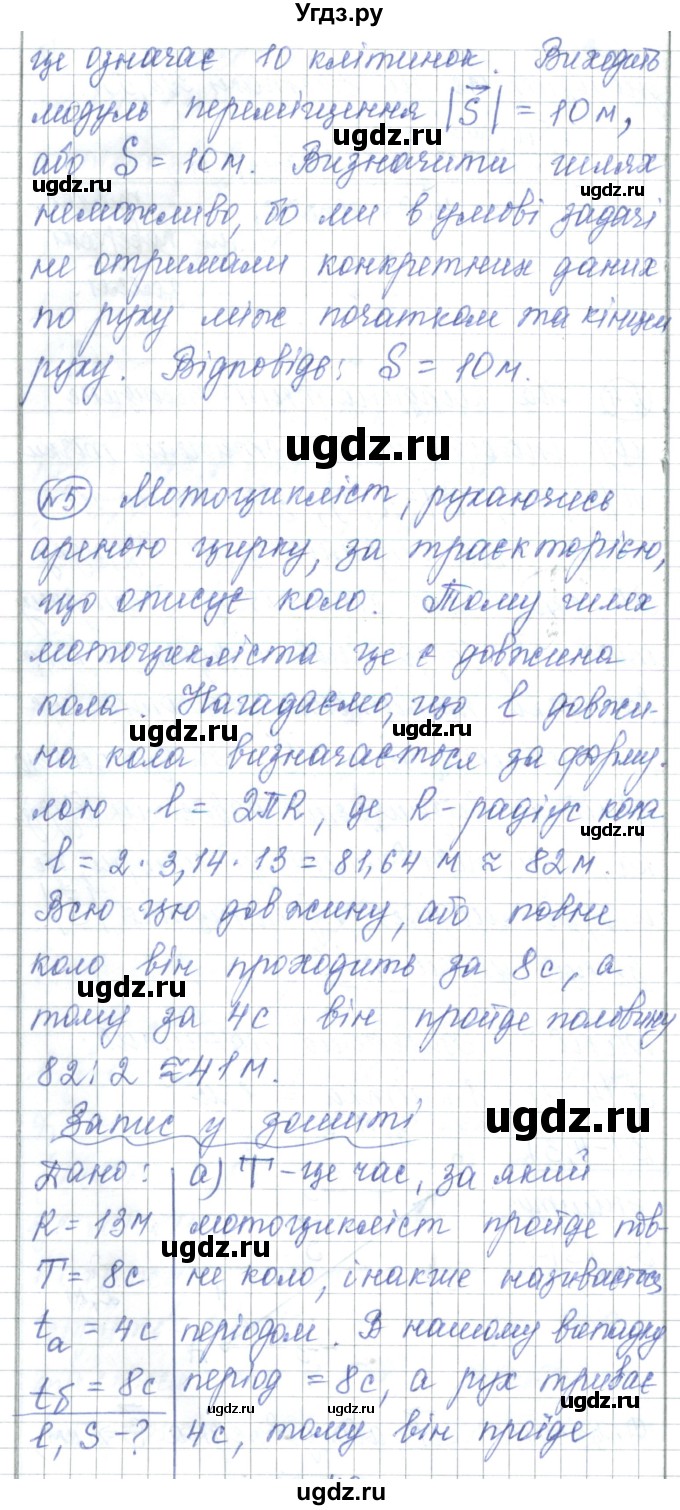 Угдз.ру
це означає 10 клітинок. Виходить
модуль переміщення |S⃗| = 10м,
або S = 10м. Визначити шлях
неможливо, бо ми в умові задачі
не отримали конкретних даних
по руху між початком та кінцем
руху. Відповідь: S = 10м.
ugdz.ru
№5 Мотоцикліст, рухаючись
ареною цирку, за траєкторією,
що описує коло. Тому шлях
мотоцикліста це є довжина
кола. Нагадаємо, що l довжи-
на кола визначається за форму-
лою l = 2πR, де R - радіус кола
l = 2 · 3,14 · 13 = 81,64 м ≈ 82м.
Всю цю довжину, або повне
коло він проходить за 8с, а
тому за 4с він пройде половину
82:2 ≈ 41м.
Запис у зошиті
Дано:
R = 13м
T = 8с
tа = 4с
tб = 8с
l, S - ?
а) T - це час, за який
мотоцикліст пройде пов-
не коло, інакше називається
періодом. В нашому випадку
період = 8с, а рух триває
4с, тому він пройде
ugdz.ru
ugdz.ru
ugdz.ru
ugdz.ru
ugdz.ru
ugdz.ru
ugdz.ru
ugdz.ru
ugdz.ru
ugdz.ru
ugdz.ru
ugdz.ru
ugdz.ru
Угдз.ру